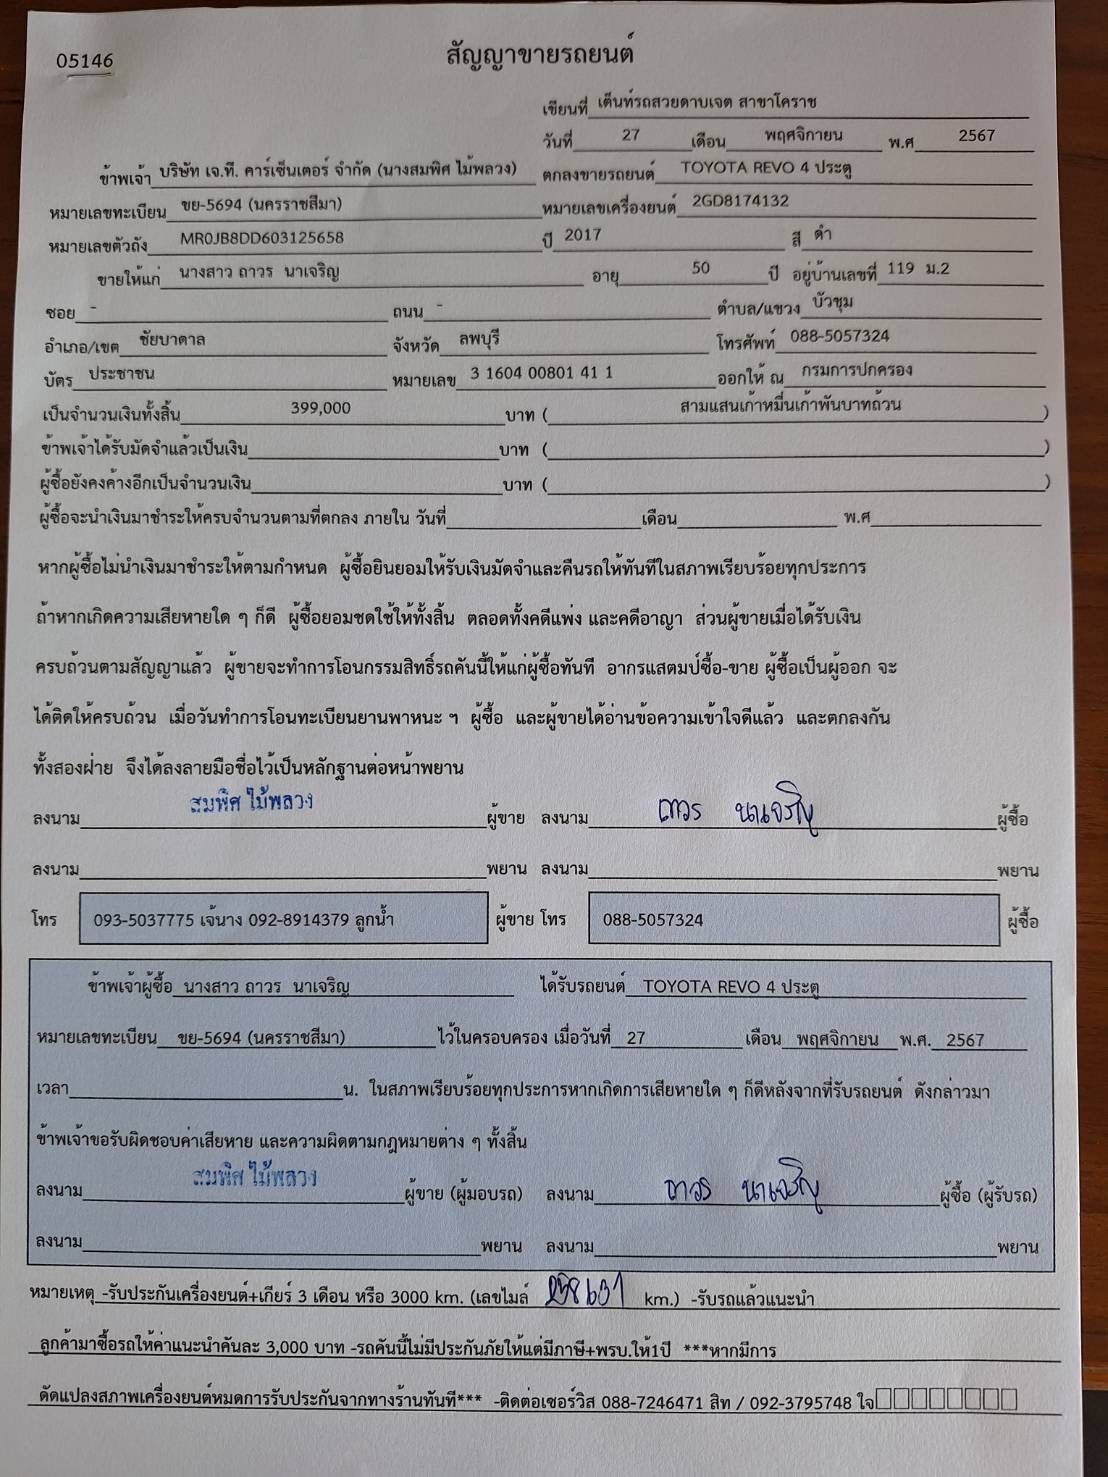 05146
สัญญาขายรถยนต์
เขียนที่ เต็นท์รถสวยดาบเจต สาขาโคราช
วันที่ 27 เดือน พฤศจิกายน พ.ศ 2567
ข้าพเจ้า บริษัท เจ.ที. คาร์เซ็นเตอร์ จำกัด (นางสมพิศ ไม้พลวง) ตกลงขายรถยนต์ TOYOTA REVO 4 ประตู
หมายเลขทะเบียน ขย-5694 (นครราชสีมา) หมายเลขเครื่องยนต์ 2GD8174132
หมายเลขตัวถัง MR0JB8DD603125658 ปี 2017 สี ดำ
ขายให้แก่ นางสาว ถาวร นาเจริญ อายุ 50 ปี อยู่บ้านเลขที่ 119 ม.2
ซอย - ถนน - ตำบล/แขวง บัวชุม
อำเภอ/เขต ชัยบาดาล จังหวัด ลพบุรี โทรศัพท์ 088-5057324
บัตร ประชาชน หมายเลข 3 1604 00801 41 1 ออกให้ ณ กรมการปกครอง
เป็นจำนวนเงินทั้งสิ้น 399,000 บาท ( สามแสนเก้าหมื่นเก้าพันบาทถ้วน )
ข้าพเจ้าได้รับมัดจำแล้วเป็นเงิน บาท ( )
ผู้ซื้อยังคงค้างอีกเป็นจำนวนเงิน บาท ( )
ผู้ซื้อจะนำเงินมาชำระให้ครบจำนวนตามที่ตกลง ภายใน วันที่ เดือน พ.ศ
หากผู้ซื้อไม่นำเงินมาชำระให้ตามกำหนด ผู้ซื้อยินยอมให้รับเงินมัดจำและคืนรถให้ทันทีในสภาพเรียบร้อยทุกประการ
ถ้าหากเกิดความเสียหายใด ๆ ก็ดี ผู้ซื้อยอมชดใช้ให้ทั้งสิ้น ตลอดทั้งคดีแพ่ง และคดีอาญา ส่วนผู้ขายเมื่อได้รับเงิน
ครบถ้วนตามสัญญาแล้ว ผู้ขายจะทำการโอนกรรมสิทธิ์รถคันนี้ให้แก่ผู้ซื้อทันที อากรแสตมป์ซื้อ-ขาย ผู้ซื้อเป็นผู้ออก จะ
ได้ติดให้ครบถ้วน เมื่อวันทำการโอนทะเบียนยานพาหนะ ฯ ผู้ซื้อ และผู้ขายได้อ่านข้อความเข้าใจดีแล้ว และตกลงกัน
ทั้งสองฝ่าย จึงได้ลงลายมือชื่อไว้เป็นหลักฐานต่อหน้าพยาน
ลงนาม สมพิศ ไม้พลวง ผู้ขาย ลงนาม ถาวร นาเจริญ ผู้ซื้อ
ลงนาม พยาน ลงนาม พยาน
โทร 093-5037775 เจ้นาง 092-8914379 ลูกน้ำ ผู้ขาย โทร 088-5057324 ผู้ซื้อ
ข้าพเจ้าผู้ซื้อ นางสาว ถาวร นาเจริญ ได้รับรถยนต์ TOYOTA REVO 4 ประตู
หมายเลขทะเบียน ขย-5694 (นครราชสีมา) ไว้ในครอบครอง เมื่อวันที่ 27 เดือน พฤศจิกายน พ.ศ. 2567
เวลา น. ในสภาพเรียบร้อยทุกประการหากเกิดการเสียหายใด ๆ ก็ดีหลังจากที่รับรถยนต์ ดังกล่าวมา
ข้าพเจ้าขอรับผิดชอบค่าเสียหาย และความผิดตามกฎหมายต่าง ๆ ทั้งสิ้น
ลงนาม สมพิศ ไม้พลวง ผู้ขาย (ผู้มอบรถ) ลงนาม ถาวร นาเจริญ ผู้ซื้อ (ผู้รับรถ)
ลงนาม พยาน ลงนาม พยาน
หมายเหตุ -รับประกันเครื่องยนต์+เกียร์ 3 เดือน หรือ 3000 km. (เลขไมล์ km.) -รับรถแล้วแนะนำ
ลูกค้ามาซื้อรถให้ค่าแนะนำคันละ 3,000 บาท -รถคันนี้ไม่มีประกันภัยให้แต่มีภาษี+พรบ.ให้1ปี ***หากมีการ
ดัดแปลงสภาพเครื่องยนต์หมดการรับประกันจากทางร้านทันที*** -ติดต่อเซอร์วิส 088-7246471 สิท / 092-3795748 ใจ